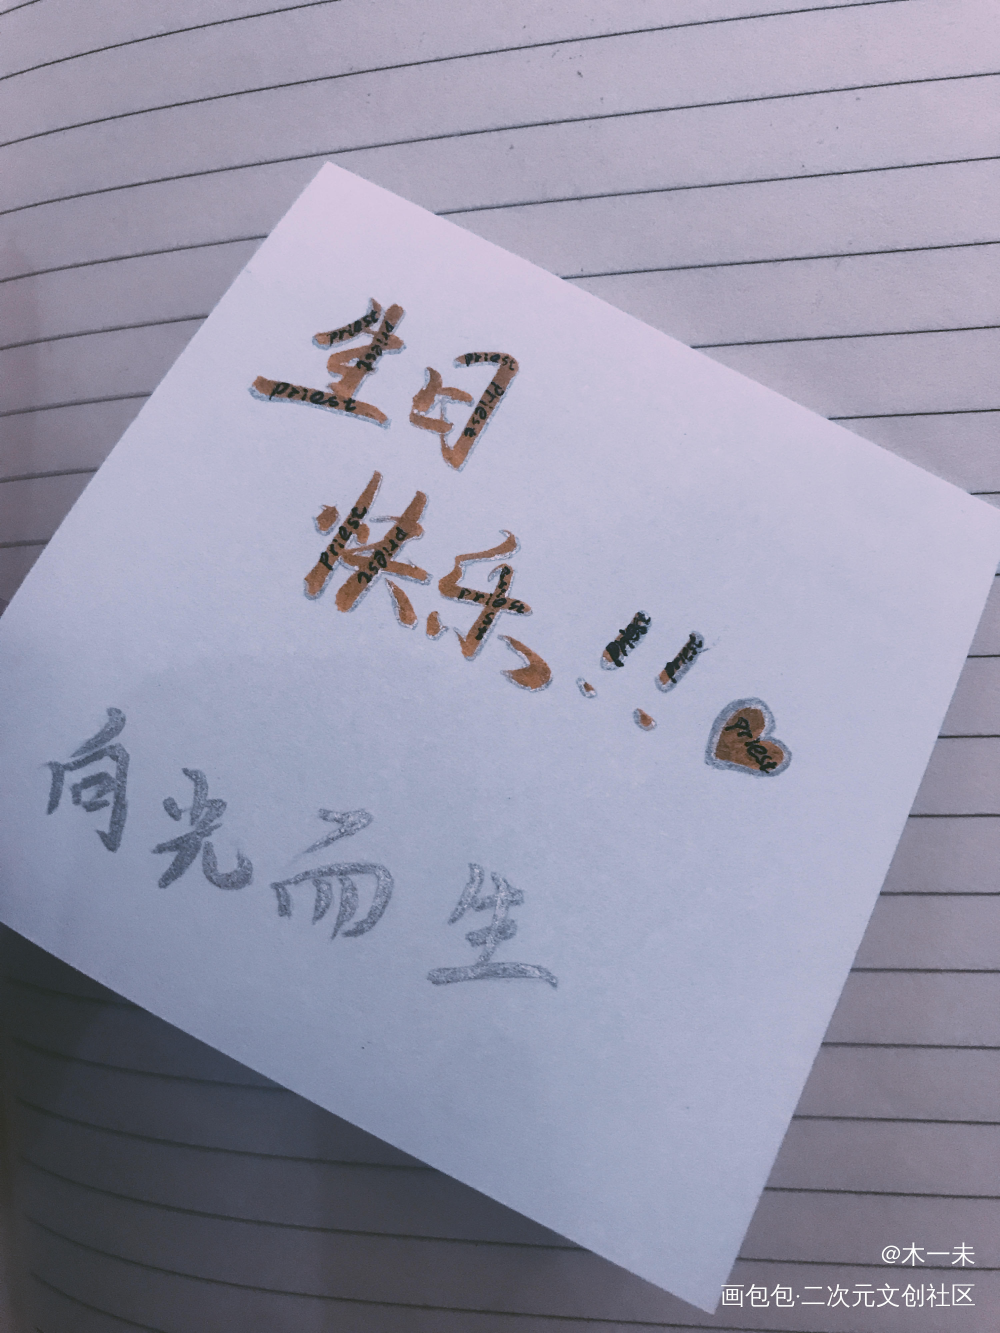 生日
快乐!!
priest priest priest
priest priest
priest priest
priest priest
priest priest
priest
向光而生
@木一未
画包包·二次元文创社区